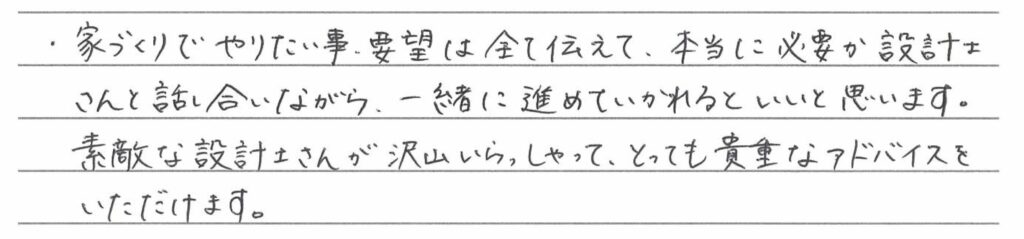 ・家づくりでやりたい事、要望は全て伝えて、本当に必要か設計士
さんと話し合いながら、一緒に進めていかれるといいと思います。
素敵な設計士さんが沢山いらっしゃって、とっても貴重なアドバイスを
いただけます。